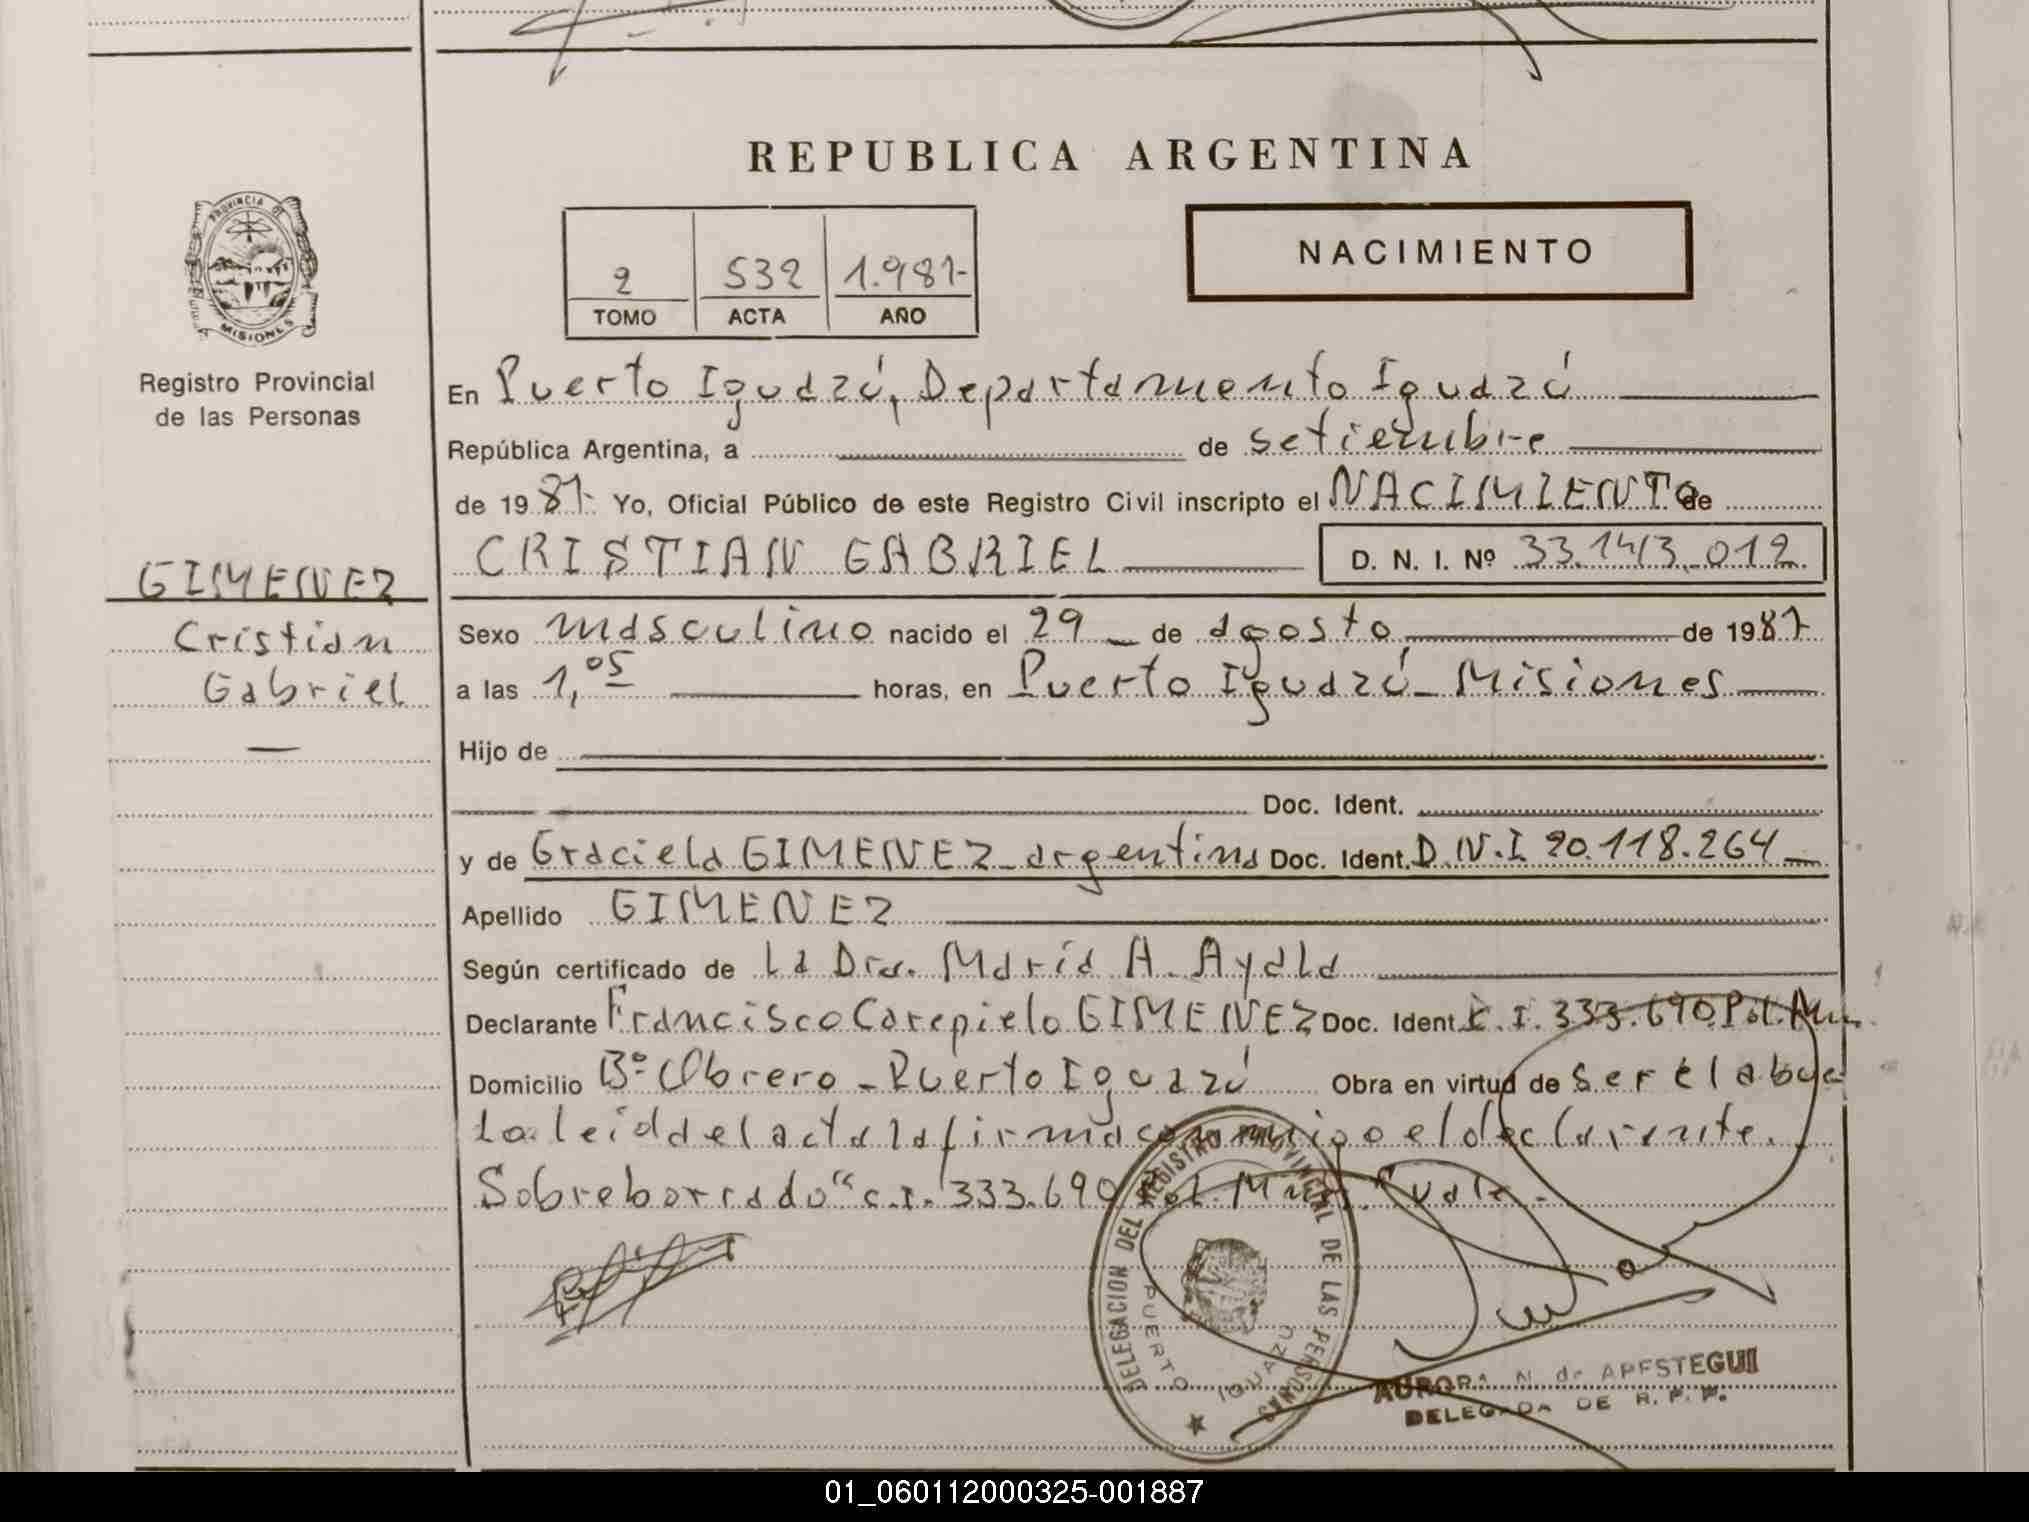 REPUBLICA ARGENTINA
NACIMIENTO
2 532 1.987
TOMO ACTA AÑO
PROVINCIA DE MISIONES
Registro Provincial
de las Personas
GIMENEZ
Cristian
Gabriel
En Puerto Iguazú, Departamento Iguazú
República Argentina, a de setiembre
de 1987 Yo, Oficial Público de este Registro Civil inscripto el NACIMIENTO de
CRISTIAN GABRIEL D. N. I. Nº 33.143.012
Sexo masculino nacido el 29 de agosto de 1987
a las 1,05 horas, en Puerto Iguazú - Misiones
Hijo de
Doc. Ident.
y de Graciela GIMENEZ - argentina Doc. Ident. D.N.I 20.118.264
Apellido GIMENEZ
Según certificado de La Dra. María A. Ayala
Declarante Francisco Carepielo GIMENEZ Doc. Ident. C.I. 333.690 Pol.
Domicilio Bº Obrero - Puerto Iguazú Obra en virtud de ser el abue
lo. leida el acta la firma conmigo el declarante.
Sobreborrado "C.I. 333.690 Pol. Mnes." vale.
DELEGACION DEL REGISTRO PROVINCIAL DE LAS PERSONAS
PUERTO IGUAZU
AURORA N. de APESTEGUI
DELEGADA DE R. P. P.
01_060112000325-001887